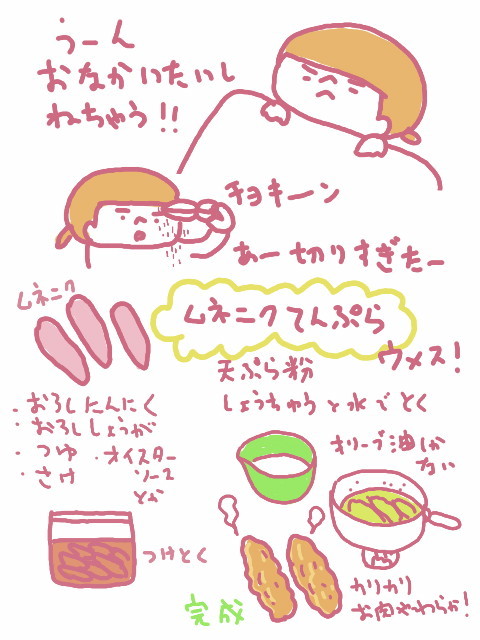 うーん
おなかいたいし
ねちゃう!!
チョキーン
あー切りすぎたー
ムネニク
ムネニクてんぷら
ウメス!
天ぷら粉
しょうちゅうと水でとく
・おろしにんにく
・おろししょうが
・つゆ
・さけ
・オイスター
ソース
とか
オリーブ油しか
ない
つけとく
カリカリ
お肉やわらか!
完成